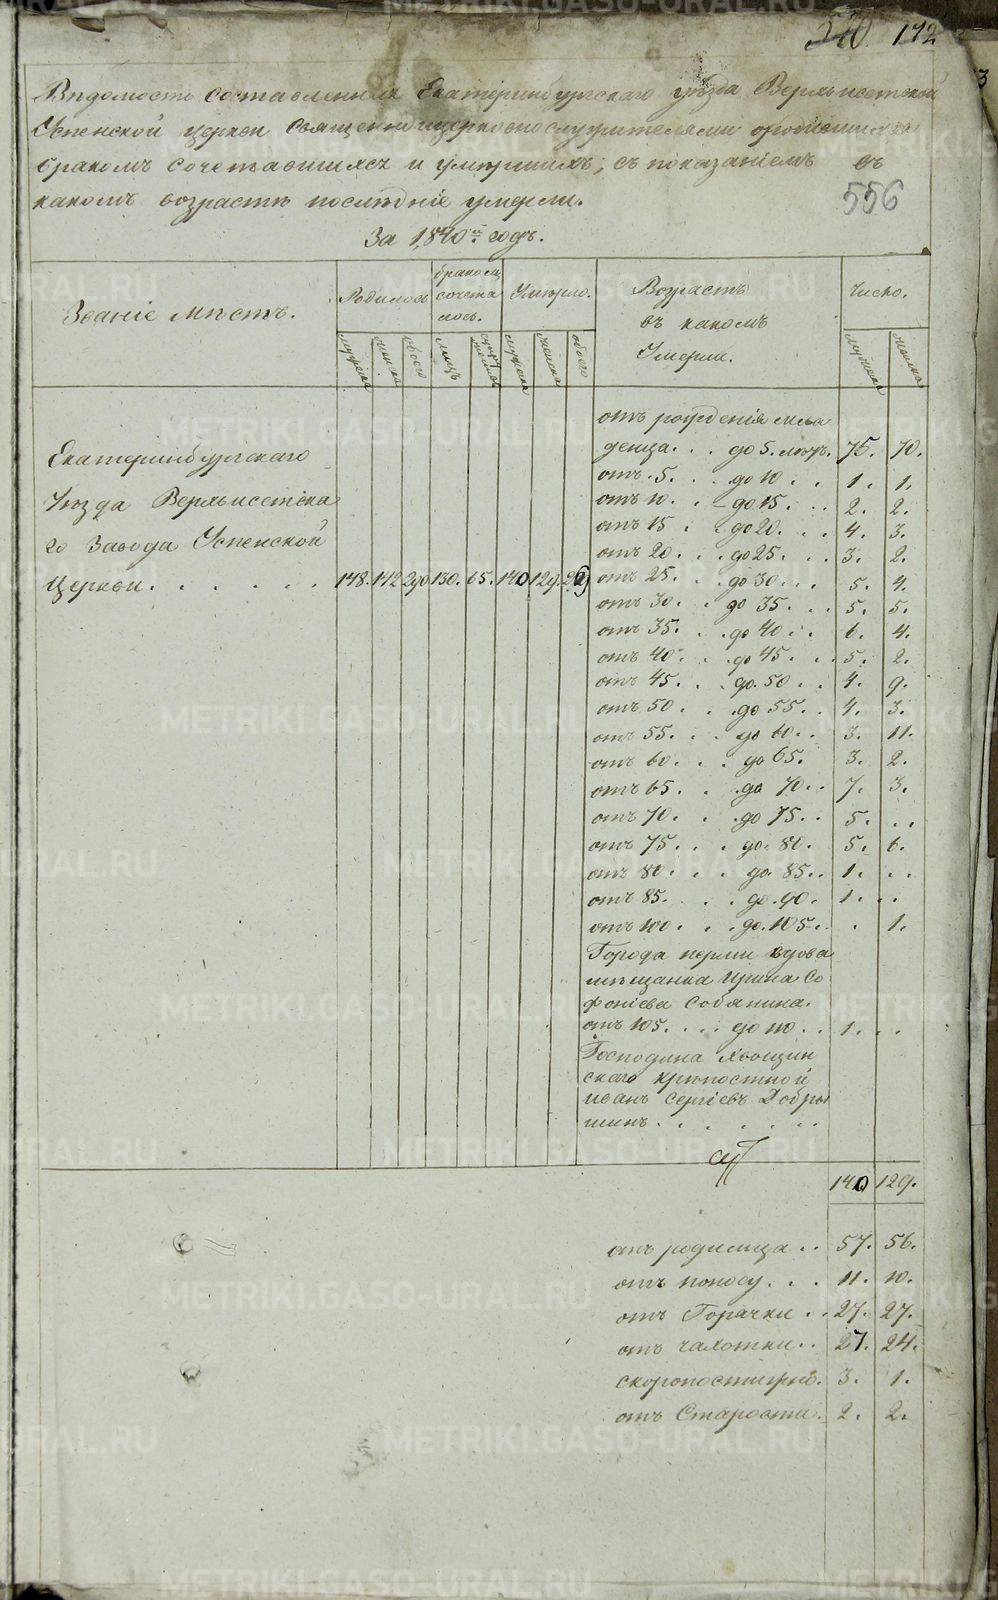 570. 172
Вѣдомость составленная Екатеринбургскаго уѣзда Верхъисетской
Успенской церкви священно и церковнослужителями о родившихся
бракомъ сочетавшихся и умершихъ, съ показаніемъ въ
какомъ возрастѣ послѣдніе умерли.
556
За 1,840й годъ.
Званіе мѣстъ.
Родилось
бракомъ сочеталось.
Умерло.
Возрастъ въ какомъ Умерли.
Число.
мужеска женска обоего лицъ мужеска женска обоего мужеска женска
отъ рожденія мла
денца . . . до 5. лѣтъ. 75. 70.
отъ 5. . . до 10 . . 1. 1.
отъ 10. . до 15. . . 2. 2.
отъ 15 . . до 20. . . 4. 3.
отъ 20. . . до 25. . . 3. 2.
Екатеринбургскаго
Уѣзда Верхъисетска
го Завода Успенской
Церкви. . . . . . . 148. 142 290 130. 65. 140 129. 269
отъ 25. . . до 30. . . 5. 4.
отъ 30. . . до 35. . . 5. 5.
отъ 35. . . до 40 . . 6. 4.
отъ 40. . . до 45. . . 5. 2.
отъ 45. . . до 50 . . 4. 9.
отъ 50. . . до 55. . . 4. 3.
отъ 55. . . до 60. . 3. 11.
отъ 60. . . до 65. 3. 2.
отъ 65. . . до 70. . 7. 3.
отъ 70. . . до 75. . 5. . .
отъ 75. . . до 80. 5. 6.
отъ 80. . . до 85. . 1. . .
отъ 85. . . до 90. 1. . .
отъ 100. . . до 105. . . 1.
Города перми вдова
мѣщанка Ирина Со
фоніева Собянина.
отъ 105. . . . до 110. . 1. . .
Господина
скаго крѣпостной
иванъ Сергіевъ Добры
нинъ. . . . . . .
140 129.
отъ родимца . . 57. 56.
отъ поносу. . . 11. 10.
отъ Горячки . . 27. 27.
отъ чахотки . . 27. 24.
скоропостижно. 3. 1.
отъ Старости. 2. 2.
METRIKI.GASO-URAL.RU